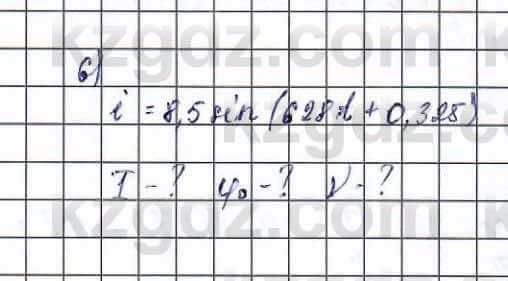 6)
i = 8,5 sin (628t + 0,325)
I - ? φ₀ - ? ν - ?
kzgdz.com